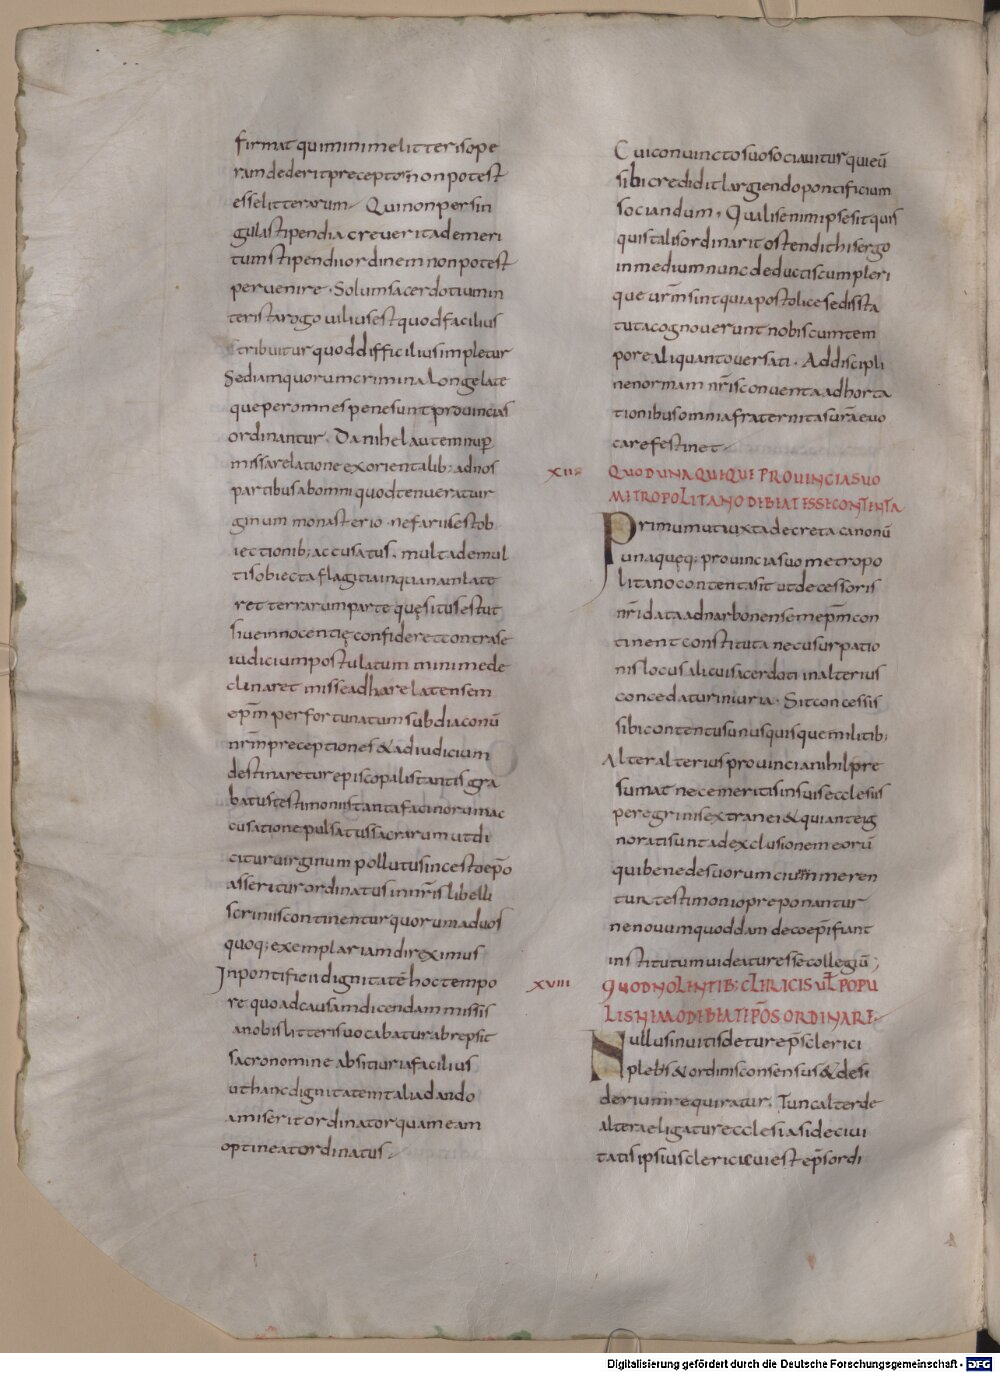 firmat qui minime litteris ope
ram dederit preceptor non potest
esse litterarum. Qui non per sin
gula stipendia creverit ad emeri
tum stipendii ordinem non potest
pervenire. Solum sacerdotium in
ter ista rogo vilius est quod facilius
tribuitur quod difficilius impletur
Sed iam quorum crimina longe late
que per omnes pene sunt provincias
ordinantur. Danihel autem nup̄
missa relatione ex orientalib; ad nos
partibus ab omni quod tenuerat vir
ginum monasterio. nefariis est ob
iectionib; accusatus. multa de mul
tis obiecta flagitia in qua nam late
ret terrarum parte quęsitus est ut
si ue innocentię confideret contra se
iudicium postulatum minime de
clinaret misse ad harelatensem
ep̄m per fortunatum subdiaconū
nr̄m preceptiones & ad iudicium
destinaretur episcopalis tantis gra
batus testimoniis tanta facinorum ac
cusatione pulsatus sacrarum ut di
citur virginum pollutus incesto ep̄o
asseritur ordinatus in nr̄is libelli
scriniis continentur quorum ad vos
quoq; exemplariam direximus
In pontificii dignitatē hoc tempo
re quo ad causam dicendam missis
a nobis litteris vocabatur abrepsit
sacro nomine absit iuria facilius
ut hanc dignitatem talia dando
amiserit ordinator quam eam
optineat ordinatus.
Cui convincto suo sociavitur qui eū
sibi credidit largiendo pontificium
sociandum. Qualis enim ipse sit quis
quis talis ordinarit ostendit his ergo
in medium nunc deductis cum pleri
que vr̄m sint qui apostolice sedis sta
tuta cognoverunt nobiscum tem
pore aliquanto versati. Ad discipli
nę normam nr̄is conventa adhorta
tionibus omnia fraternitas vr̄a evo
care festinet
XVII QUOD UNA QUEQUE PROVINCIA SUO
METROPOLITANO DEBEAT ESSE CONTENTA
Primum ut iuxta decreta canonū
unaquęq; provincia suo metropo
litano contenta sit ut decessoris
nr̄i data ad narbonensem ep̄m con
tinent constituta nec usurpatio
nis locus alicui sacerdoti in alterius
concedatur iniuria. Sit concessis
sibi contentus unusquisque militib;
Alter alterius provincia nihil pre
sumat nec emeritis in suis ecclesiis
peregrini & extranei & qui ante ig
norati sunt ad exclusionem eorū
qui bene de suorum civium meren
tur testimonio preponantur
ne novum quoddam de coep̄i fiant
institutum videatur esse collegiū;
XVIII QUOD NOLENTIB; CLERICIS Uł POPU
LIS NEMO DEBEAT EP̄OS ORDINARE
Nullus invitis detur ep̄s clerici
plebis & ordinis consensus & desi
derium requiratur. Tunc alter de
altera eligatur ecclesia si de civi
tatis ipsius clerici cui est ep̄s ordi
Digitalisierung gefördert durch die Deutsche Forschungsgemeinschaft - DFG